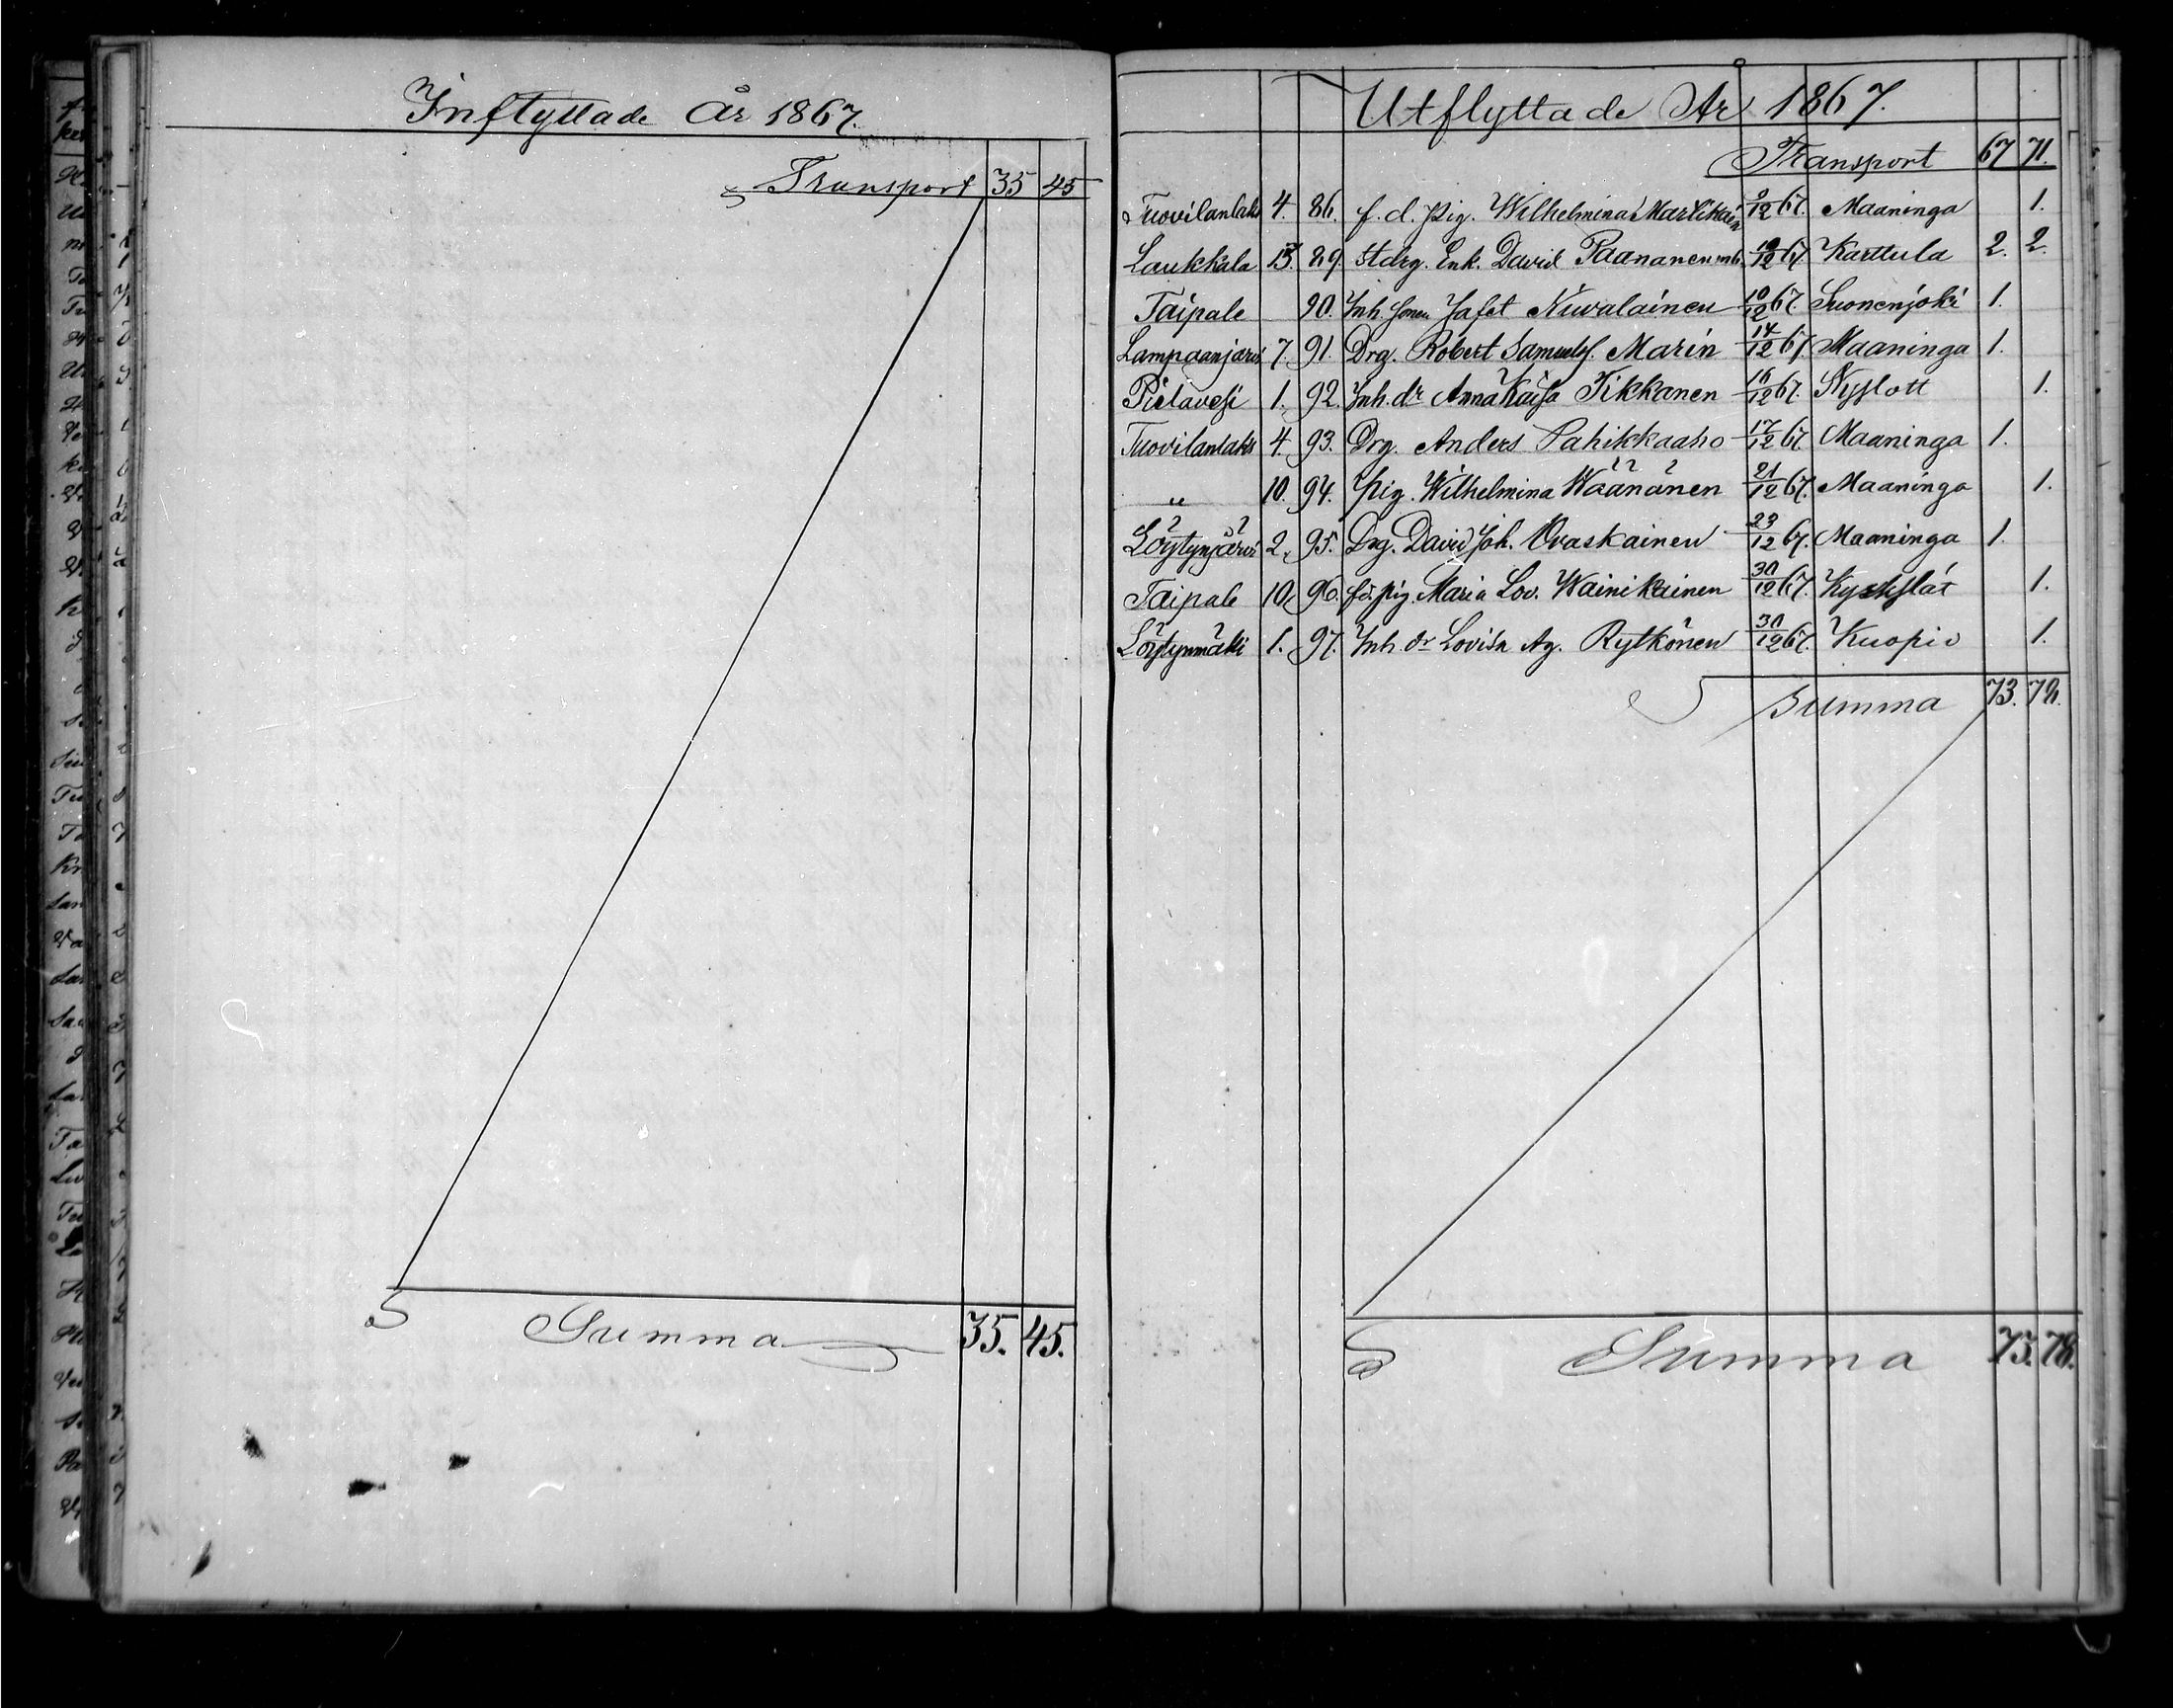 Inflyttade År 1867.
Transport 35 45
Summa 35. 45.
Utflyttade År 1867.
Transport 67 71.
Tuovilanlaks 4. 86. f. d. pig. Wilhelmina Martikain 9/12 67. Maaninga 1.
Laukkala 13. 89. Stdrg. Enk. David Paananen mb. 10/12 67 Karttula 2. 2.
Taipale 90. Inh. sonen Jafet Niuvalainen 10/12 67. Suonenjoki 1.
Lampaanjärvi 7. 91. Drg. Robert Samuelss. Marin 14/12 67 Maaninga 1.
Pielavesi 1. 92. Inh. dr Anna Kaisa Tikkanen 16/12 67. Nyslott 1.
Tuovilanlaks 4. 93. Drg. Anders Pahikkaaho 17/12 67. Maaninga 1.
" 10. 94. pig. Wilhelmina Wäänänen 21/12 67. Maaninga 1.
Löytynjärvi 2. 95. Drg. David Joh. Ovaskainen 23/12 67. Maaninga 1.
Taipale 10. 96. fd. pig. Maria Lov. Wainikainen 30/12 67. 1.
Löytynmäki 1. 97. Inh. dr Lovisa Ag. Rytkönen 31/12 67. Kuopio 1.
Summa 73. 78.
Summa 73. 78.